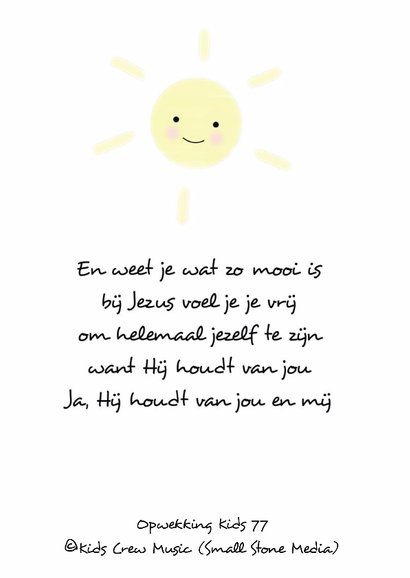 En weet je wat zo mooi is
bij Jezus voel je je vrij
om helemaal jezelf te zijn
want Hij houdt van jou
Ja, Hij houdt van jou en mij
Opwekking Kids 77
©Kids Crew Music (Small Stone Media)